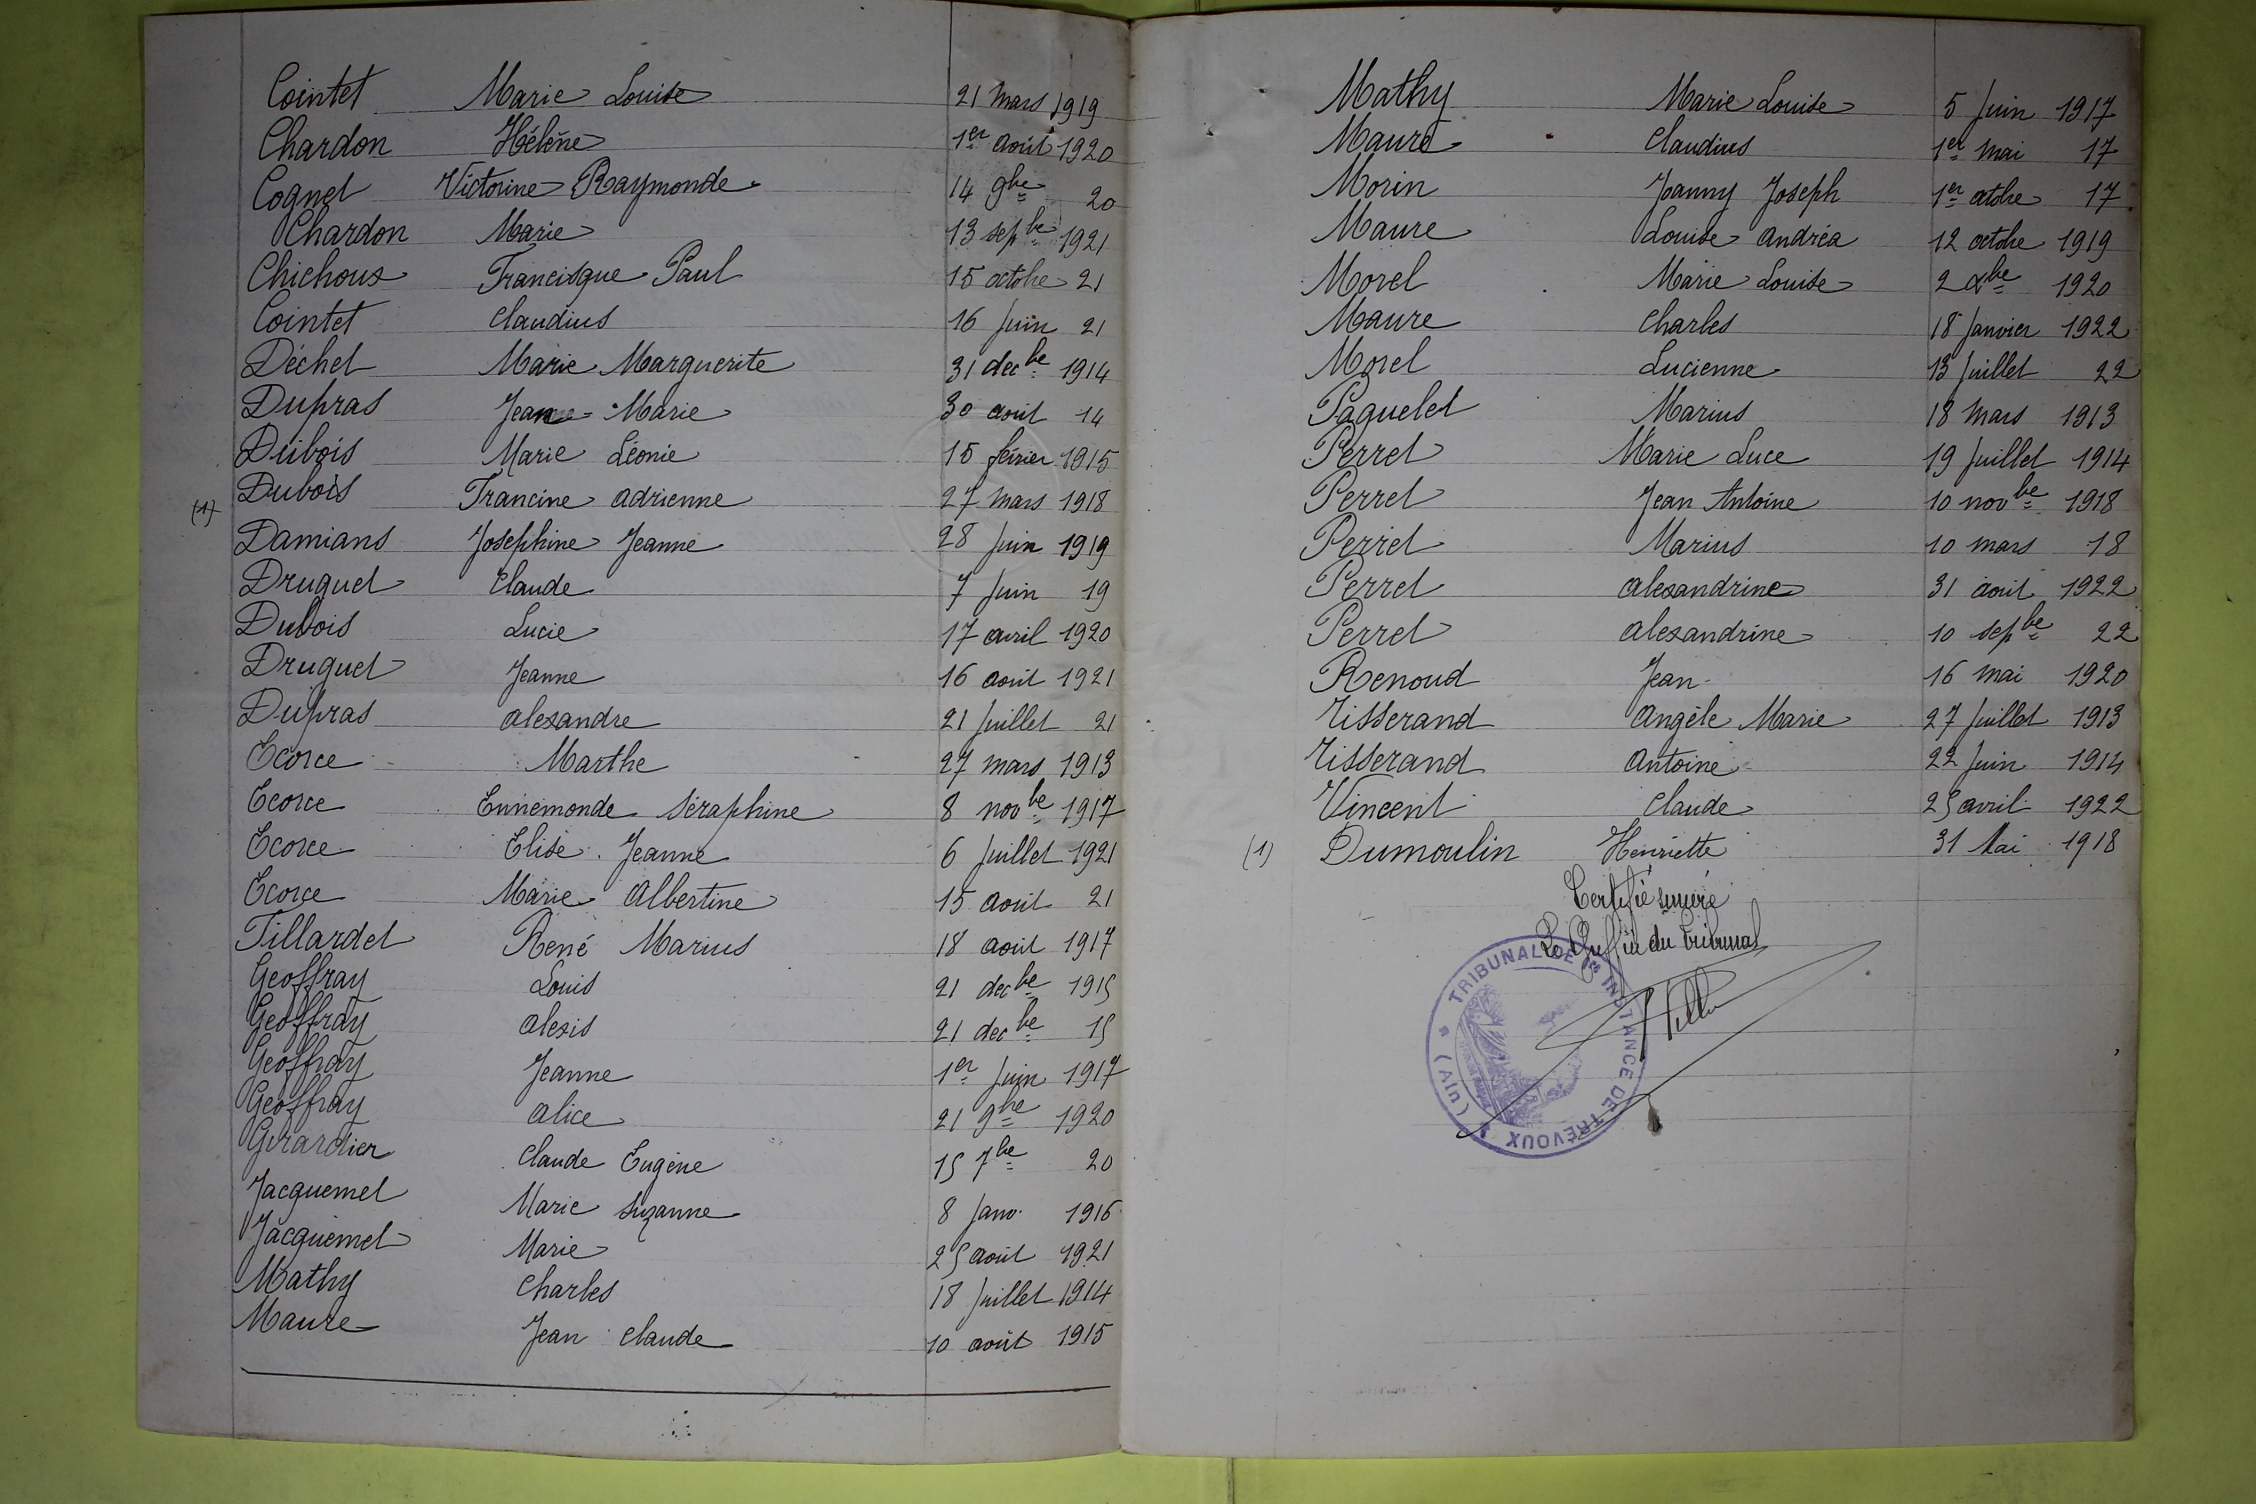 Cointet Marie Louise 21 mars 1919
Chardon Hélène 1er août 1920
Cognet Victorine Raymonde 14 9be 20
Chardon Marie 13 sepbe 1921
Chichoux Francisque Paul 15 octobre 21
Cointet Claudius 16 Juin 21
Déchet Marie Marguerite 31 decbe 1914
Dupras Jeanne Marie 30 août 14
Dubois Marie Léonie 15 février 1915
Dubois Francine Adrienne 27 mars 1918
(1)
Damians Josephine Jeanne 28 Juin 1919
Druguet Claude 7 Juin 19
Dubois Lucie 17 avril 1920
Druguet Jeanne 16 août 1921
Dupras Alexandre 21 Juillet 21
Ecorce Marthe 27 mars 1913
Ecorce Ennemonde Séraphine 8 novbe 1917
Ecorce Elise Jeanne 6 Juillet 1921
Ecorce Marie Albertine 15 août 21
Fillardet René Marius 18 août 1917
Geoffray Louis 21 decbe 1915
Geoffray Alexis 21 decbe 15
Geoffray Jeanne 1er Juin 1917
Geoffray Alice 21 9be 1920
Girardier Claude Eugène 15 7be 20
Jacquemet Marie Suzanne 8 Janv. 1916
Jacquemet Marie 25 août 1921
Mathy Charles 18 Juillet 1914
Maure Jean Claude 10 août 1915
Mathy Marie Louise 5 Juin 1917
Maure Claudius 1er mai 17
Morin Joanny Joseph 1er octobre 17
Maure Louise Andréa 12 octobre 1919
Morel Marie Louise 2 xbe 1920
Maure Charles 18 Janvier 1922
Morel Lucienne 13 Juillet 22
Paquelet Marius 18 mars 1913
Perret Marie Luce 19 Juillet 1914
Perret Jean Antoine 10 novbe 1918
Perret Marius 10 mars 18
Perret Alexandrine 31 août 1922
Perret Alexandrine 10 sepbe 22
Renoud Jean 16 mai 1920
Tisserand Angèle Marie 27 Juillet 1913
Tisserand Antoine 22 Juin 1914
Vincent Claude 25 avril 1922
(1) Dumoulin Henriette 31 Mai 1918
Certifié sincère
Le Greffier du Tribunal
TRIBUNAL DE 1re INSTANCE DE TRÉVOUX (AIN)